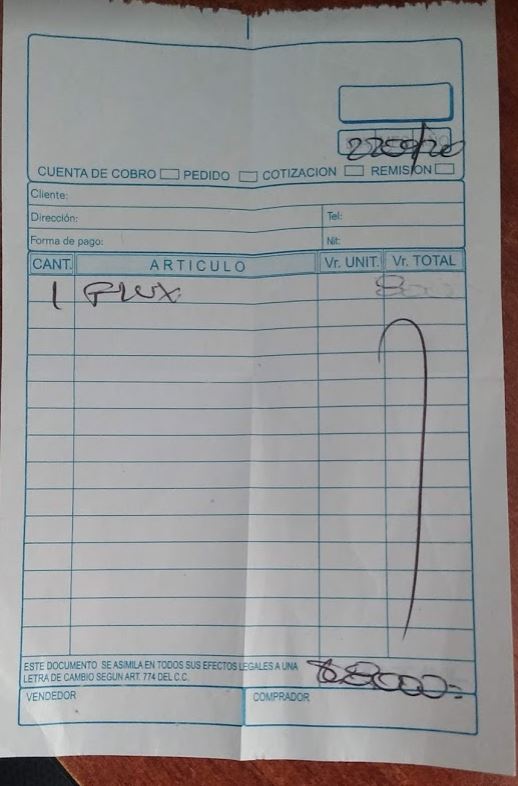 CUENTA DE COBRO PEDIDO COTIZACION REMISION
Cliente:
Dirección: Tel:
Forma de pago: Nit:
CANT. ARTICULO Vr. UNIT. Vr. TOTAL
1 FLUX
ESTE DOCUMENTO SE ASIMILA EN TODOS SUS EFECTOS LEGALES A UNA
LETRA DE CAMBIO SEGUN ART. 774 DEL C.C.
VENDEDOR COMPRADOR